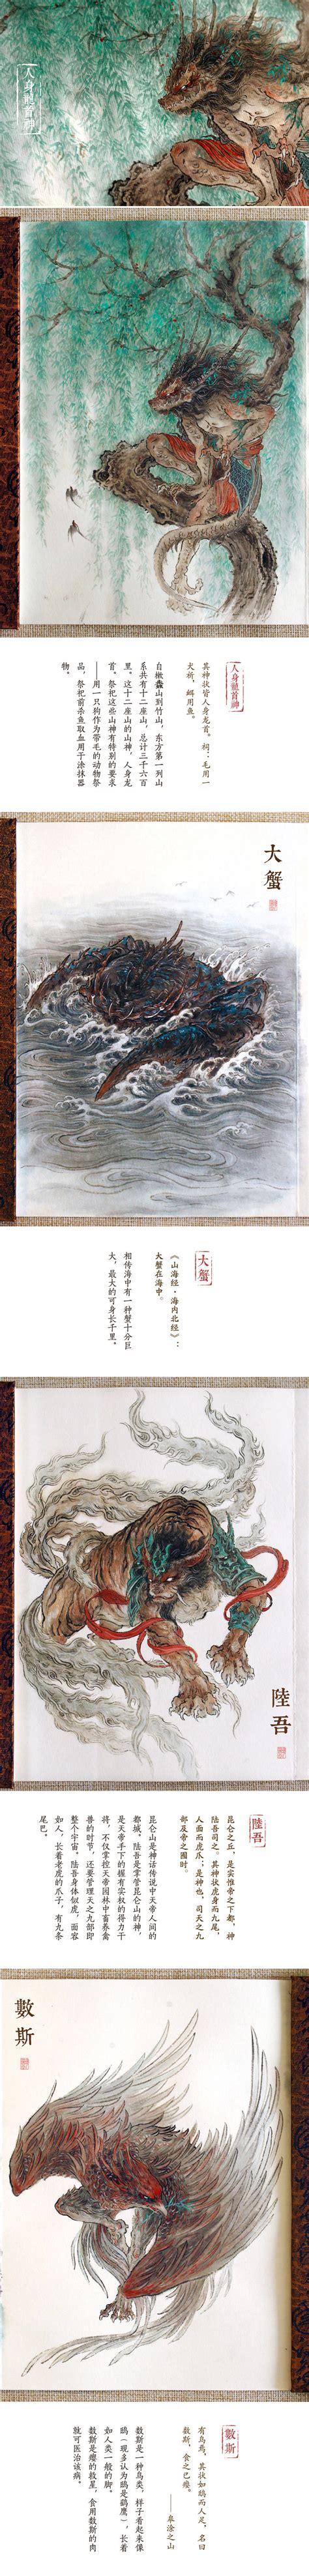 人身龍首神
人身龍首神
其神状皆人身龙首。祠：毛用一
犬祈，衈用鱼。
自樕𧑤山到竹山，东方第一列山
系共有十二座山，总计三千六百
里。这十二座山的山神，人身龙
首。祭祀这些山神有特别的要求
——用一只狗作为带毛的动物祭
品，祭祀前杀鱼取血用于涂抹器
物。
大蟹
大蟹
《山海经·海内北经》：
大蟹在海中。
相传海中有一种蟹十分巨
大，最大的可身长千里。
陸吾
陸吾
昆仑之丘，是实惟帝之下都，神
陆吾司之。其神状虎身而九尾，
人面而虎爪；是神也，司天之九
部及帝之囿时。
昆仑山是神话传说中天帝人间的
都城，陆吾是掌管昆仑山的神，
是天帝手下的握有实权的得力干
将，不仅掌控天帝园林中畜养禽
兽的时节，还要管理天之九部即
整个宇宙。陆吾身体似虎，面容
如人，长着老虎的爪子，有九条
尾巴。
數斯
數斯
有鸟焉，其状如鸱而人足，名曰
数斯，食之已瘿。
——皋涂之山
数斯是一种鸟类，样子看起来像
鸱（现多认为鸱是鹞鹰），长着
如人类一般的脚。
数斯是瘿的救星，食用数斯的肉
就可医治该病。